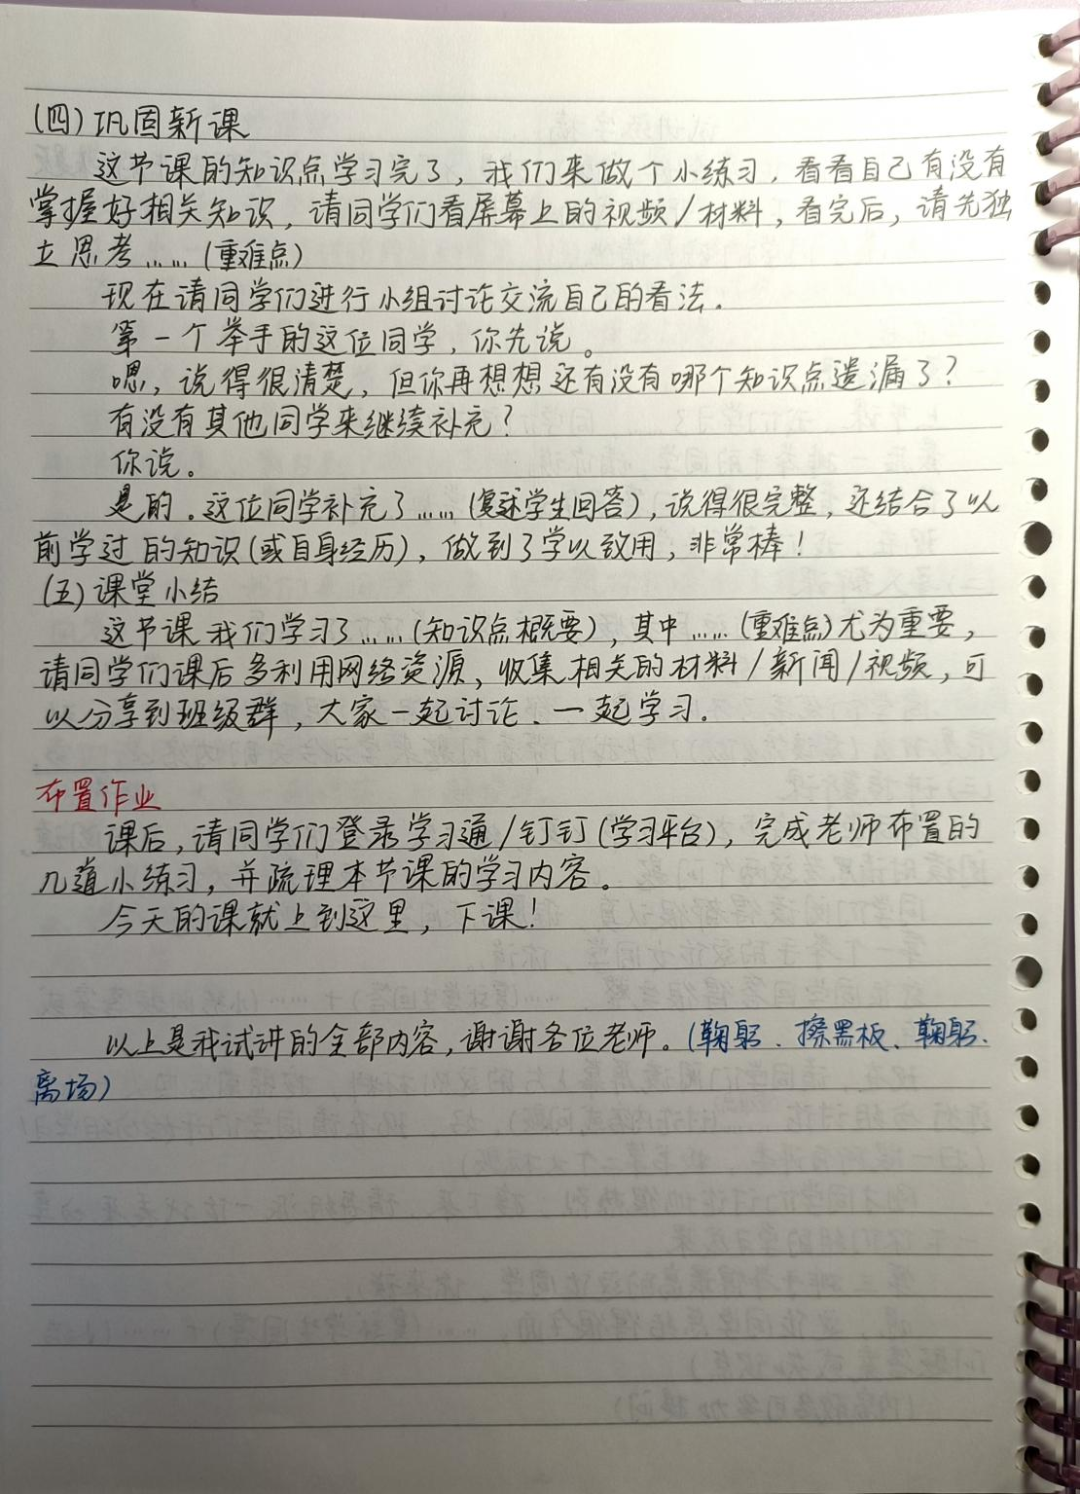 (四)巩固新课
这节课的知识点学习完了，我们来做个小练习，看看自己有没有
掌握好相关知识，请同学们看屏幕上的视频/材料，看完后，请先独
立思考……(重难点)
现在请同学们进行小组讨论交流自己的看法.
第一个举手的这位同学，你先说。
嗯，说得很清楚，但你再想想还有没有哪个知识点遗漏了？
有没有其他同学来继续补充？
你说。
是的。这位同学补充了……(复述学生回答)，说得很完整，还结合了以
前学过的知识(或自身经历)，做到了学以致用，非常棒！
(五)课堂小结
这节课我们学习了……(知识点概要)，其中……(重难点)尤为重要，
请同学们课后多利用网络资源，收集相关的材料/新闻/视频，可
以分享到班级群，大家一起讨论、一起学习.
布置作业
课后，请同学们登录学习通/钉钉(学习平台)，完成老师布置的
几道小练习，并疏理本节课的学习内容。
今天的课就上到这里，下课！
以上是我试讲的全部内容，谢谢各位老师。(鞠躬、擦黑板、鞠躬、
离场)